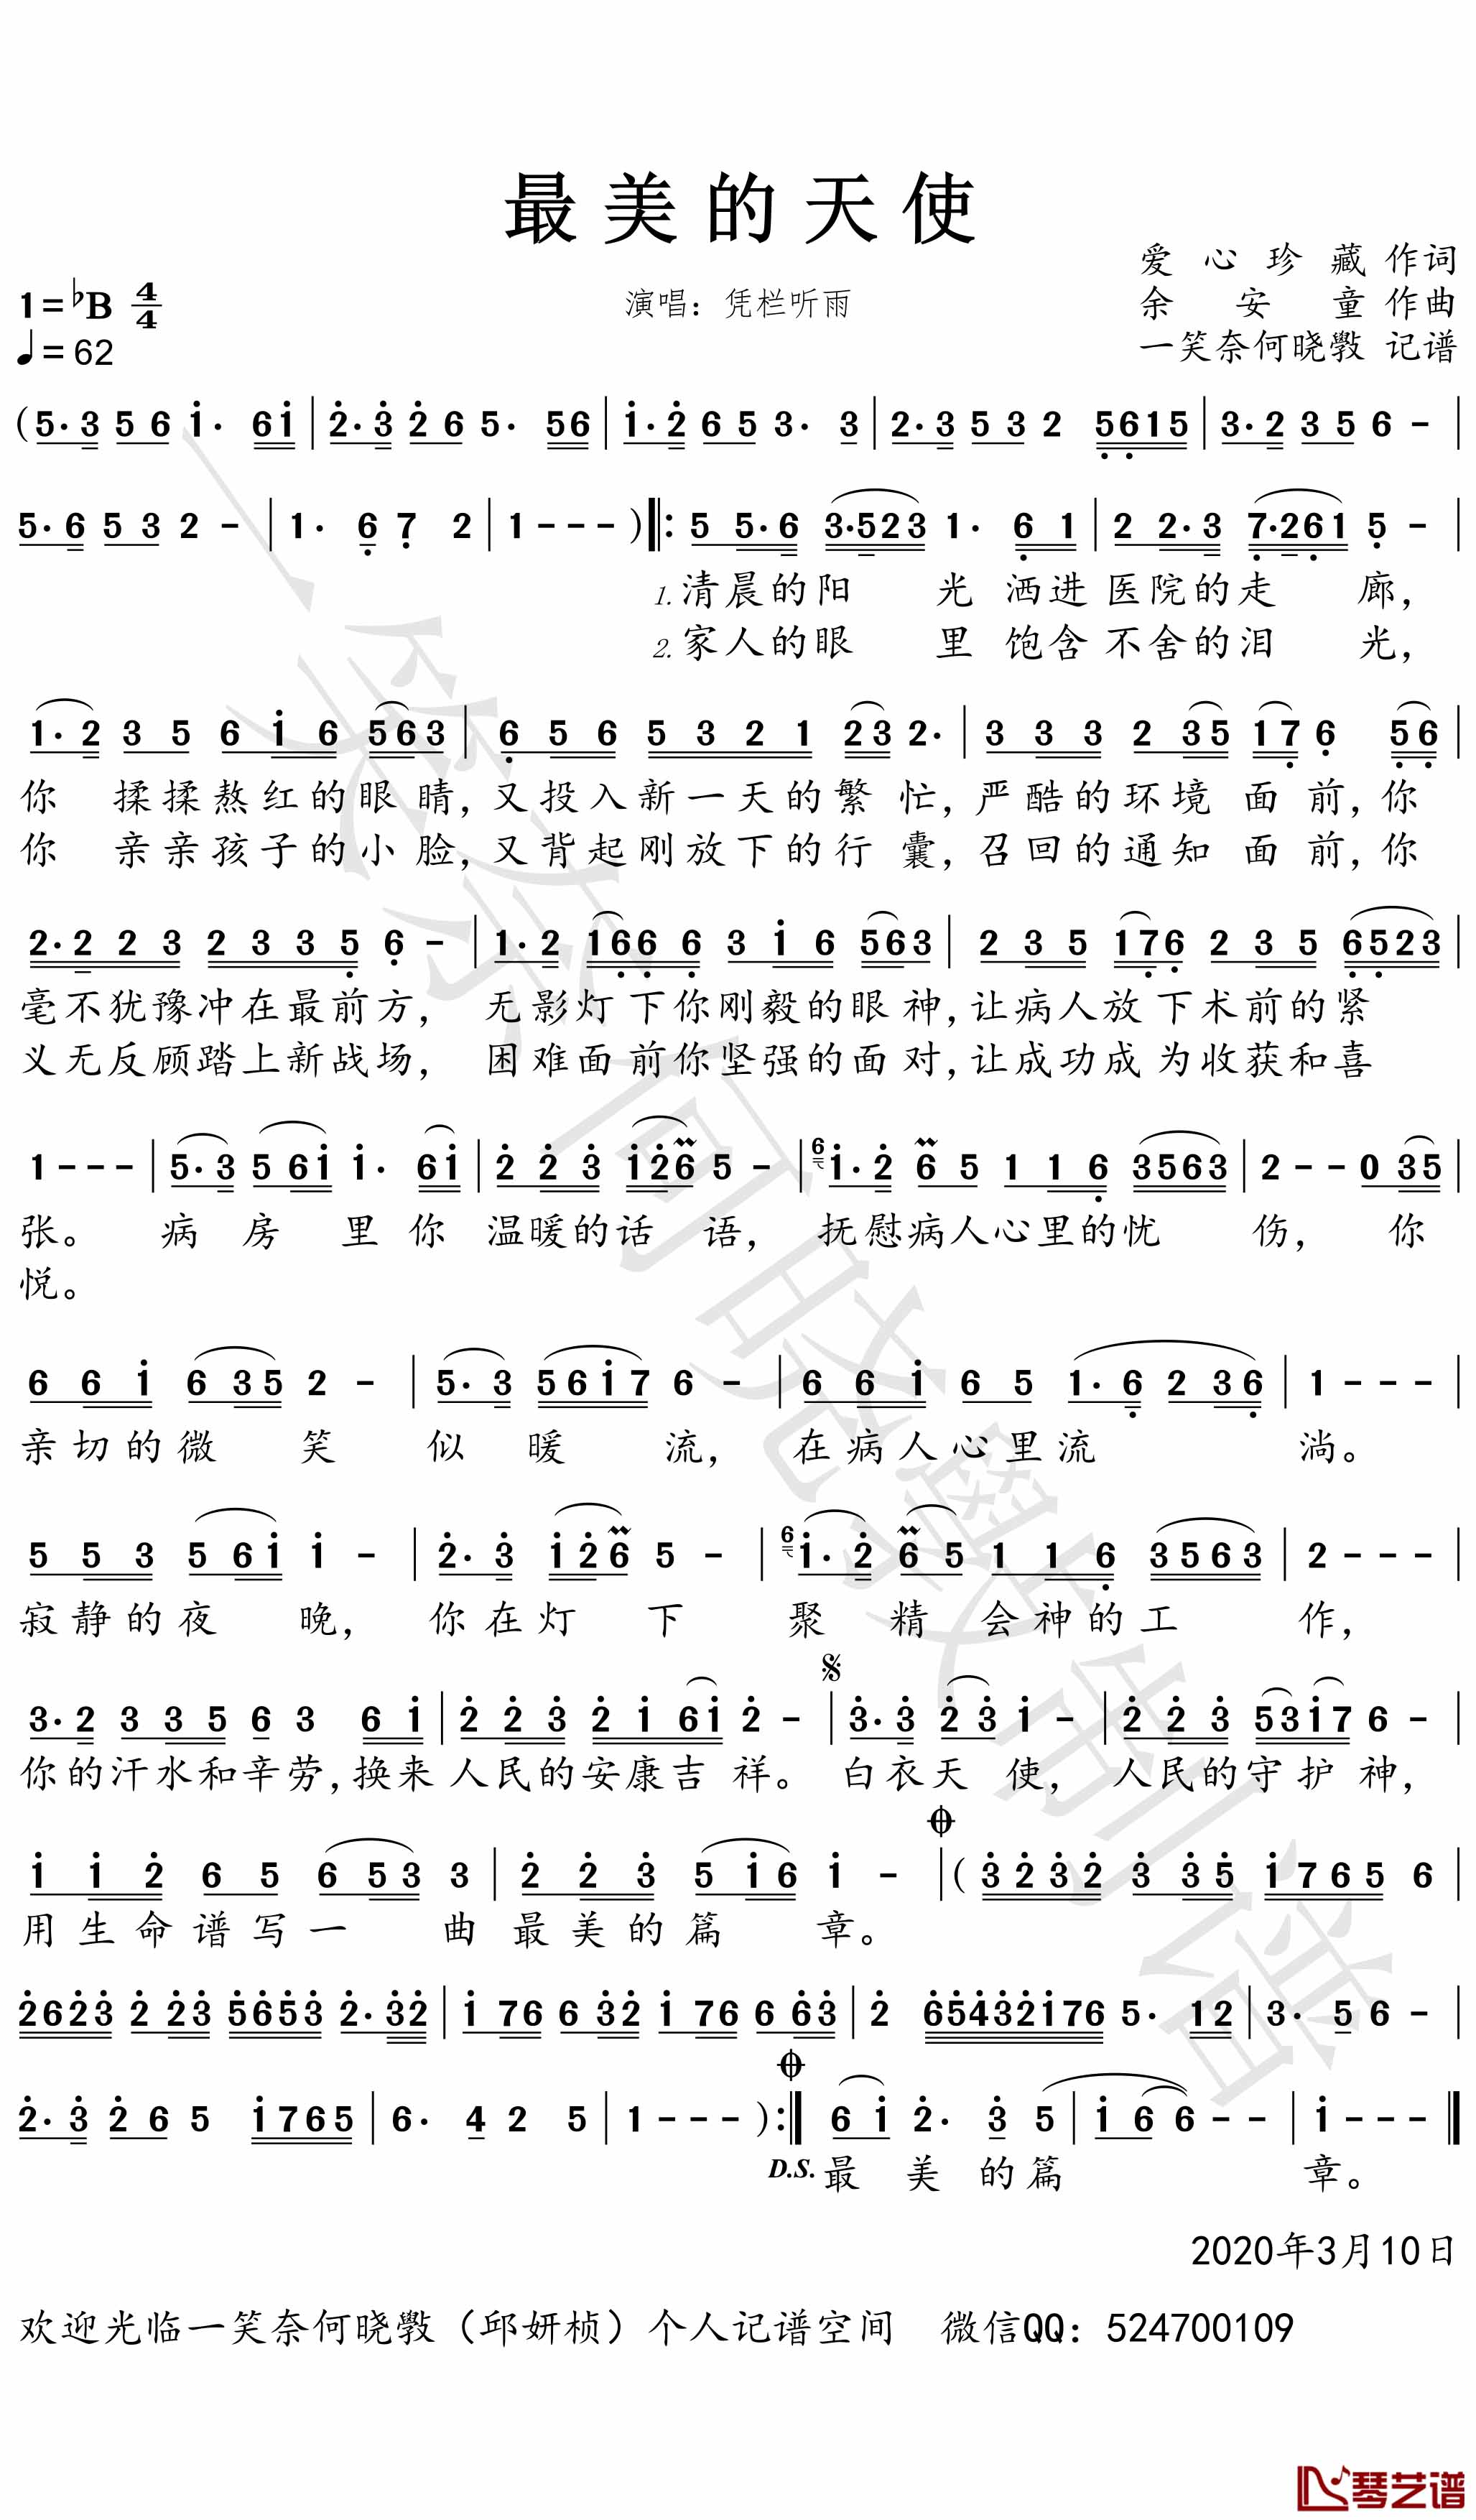 最美的天使
爱心珍藏 作词
1=♭B 4/4
演唱：凭栏听雨
余安童 作曲
♩=62
一笑奈何晓斅 记谱
(5·3 56 i· 6i | 2·3 26 5· 56 | i·2 65 3· 3 | 2·3 53 2 5615 | 3·2 35 6 - |
5·6 53 2 - | 1· 6 7 2 | 1 - - - ) ‖: 5 5·6 3·523 1· 6 1 | 2 2·3 7·261 5 - |
1.清晨的阳 光 洒进医院的走 廊，
2.家人的眼 里 饱含不舍的泪 光，
1·2 35 6i6 563 | 6 56 5321 23 2· | 3 33 2 35 17 6 56 |
你 揉揉熬红的眼睛，又投入新一天的繁忙，严酷的环境 面前，你
你 亲亲孩子的小脸，又背起刚放下的行囊，召回的通知 面前，你
2·223 2335 6 - | 1·2 166 6 3i6 563 | 2 35 176 2 35 6523 |
毫不犹豫冲在最前方， 无影灯下你刚毅的眼神，让病人放下术前的紧
义无反顾踏上新战场， 困难面前你坚强的面对，让成功成为收获和喜
1 - - - | 5·3 56i i· 6i | 2 23 i26 5 - | 6 i·2 65 116 3563 | 2 - - 0 35 |
张。 病房里你 温暖的话语， 抚慰病人心里的忧 伤， 你
悦。
6 6i 635 2 - | 5·3 56i7 6 - | 6 6i 65 1·6 236 | 1 - - - |
亲切的微 笑 似暖 流， 在病人心里流 淌。
5 53 56i i - | 2·3 i26 5 - | 6 i·2 65 116 3563 | 2 - - - |
寂静的夜 晚， 你在灯 下 聚精会神的工 作，
𝄋
3·2 335 6 3 6i | 2 23 2i6i 2 - | 3·3 23 i - | 2 23 53i7 6 - |
你的汗水和辛劳，换来 人民的安康吉祥。 白衣天 使， 人民的守护神，
𝄌
i i2 65 653 3 | 2 23 5i6 i - | (3232 335 i765 6 |
用生命谱写一 曲 最美的篇 章。
2623 223 5653 2·32 | i76 632 i76 663 | 2 65432i76 5· 12 | 3· 5 6 - |
𝄌
2·3 26 5 i765 | 6· 4 2 5 | 1 - - - ) :‖ 6i 2· 3 5 | i66 - - | i - - - ‖
D.S. 最 美 的篇 章。
2020年3月10日
欢迎光临一笑奈何晓斅（邱妍桢）个人记谱空间 微信QQ：524700109
一笑奈何晓斅制谱
琴艺谱